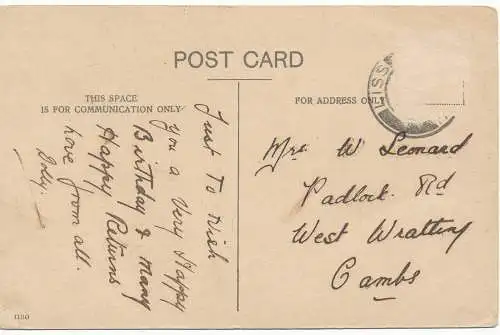 POST CARD
THIS SPACE
IS FOR COMMUNICATION ONLY
FOR ADDRESS ONLY
Just To Wish
You a Very Happy
Birthday & many
Happy Returns
Love from all.
Dolly.
Mrs W Leonard
Padlock Rd
West Wratting
Cambs
1180